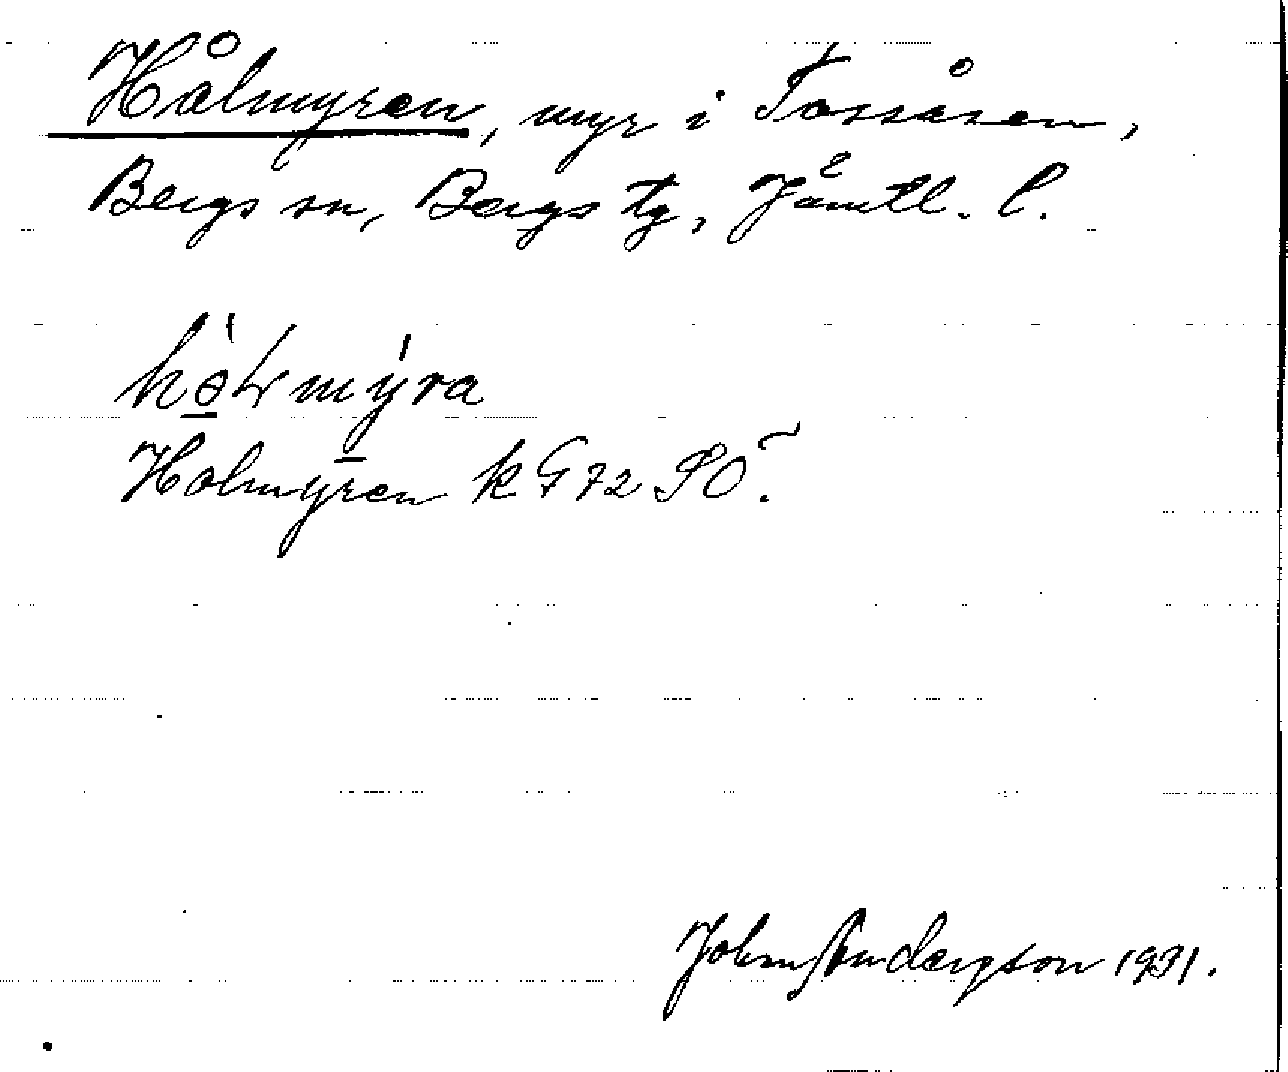 Hålmyren, myr i Tossåsen,
Bergs sn, Bergs tg, Jämtl. l.
Holmyren kG 72 SO.
John Andersson 1931.